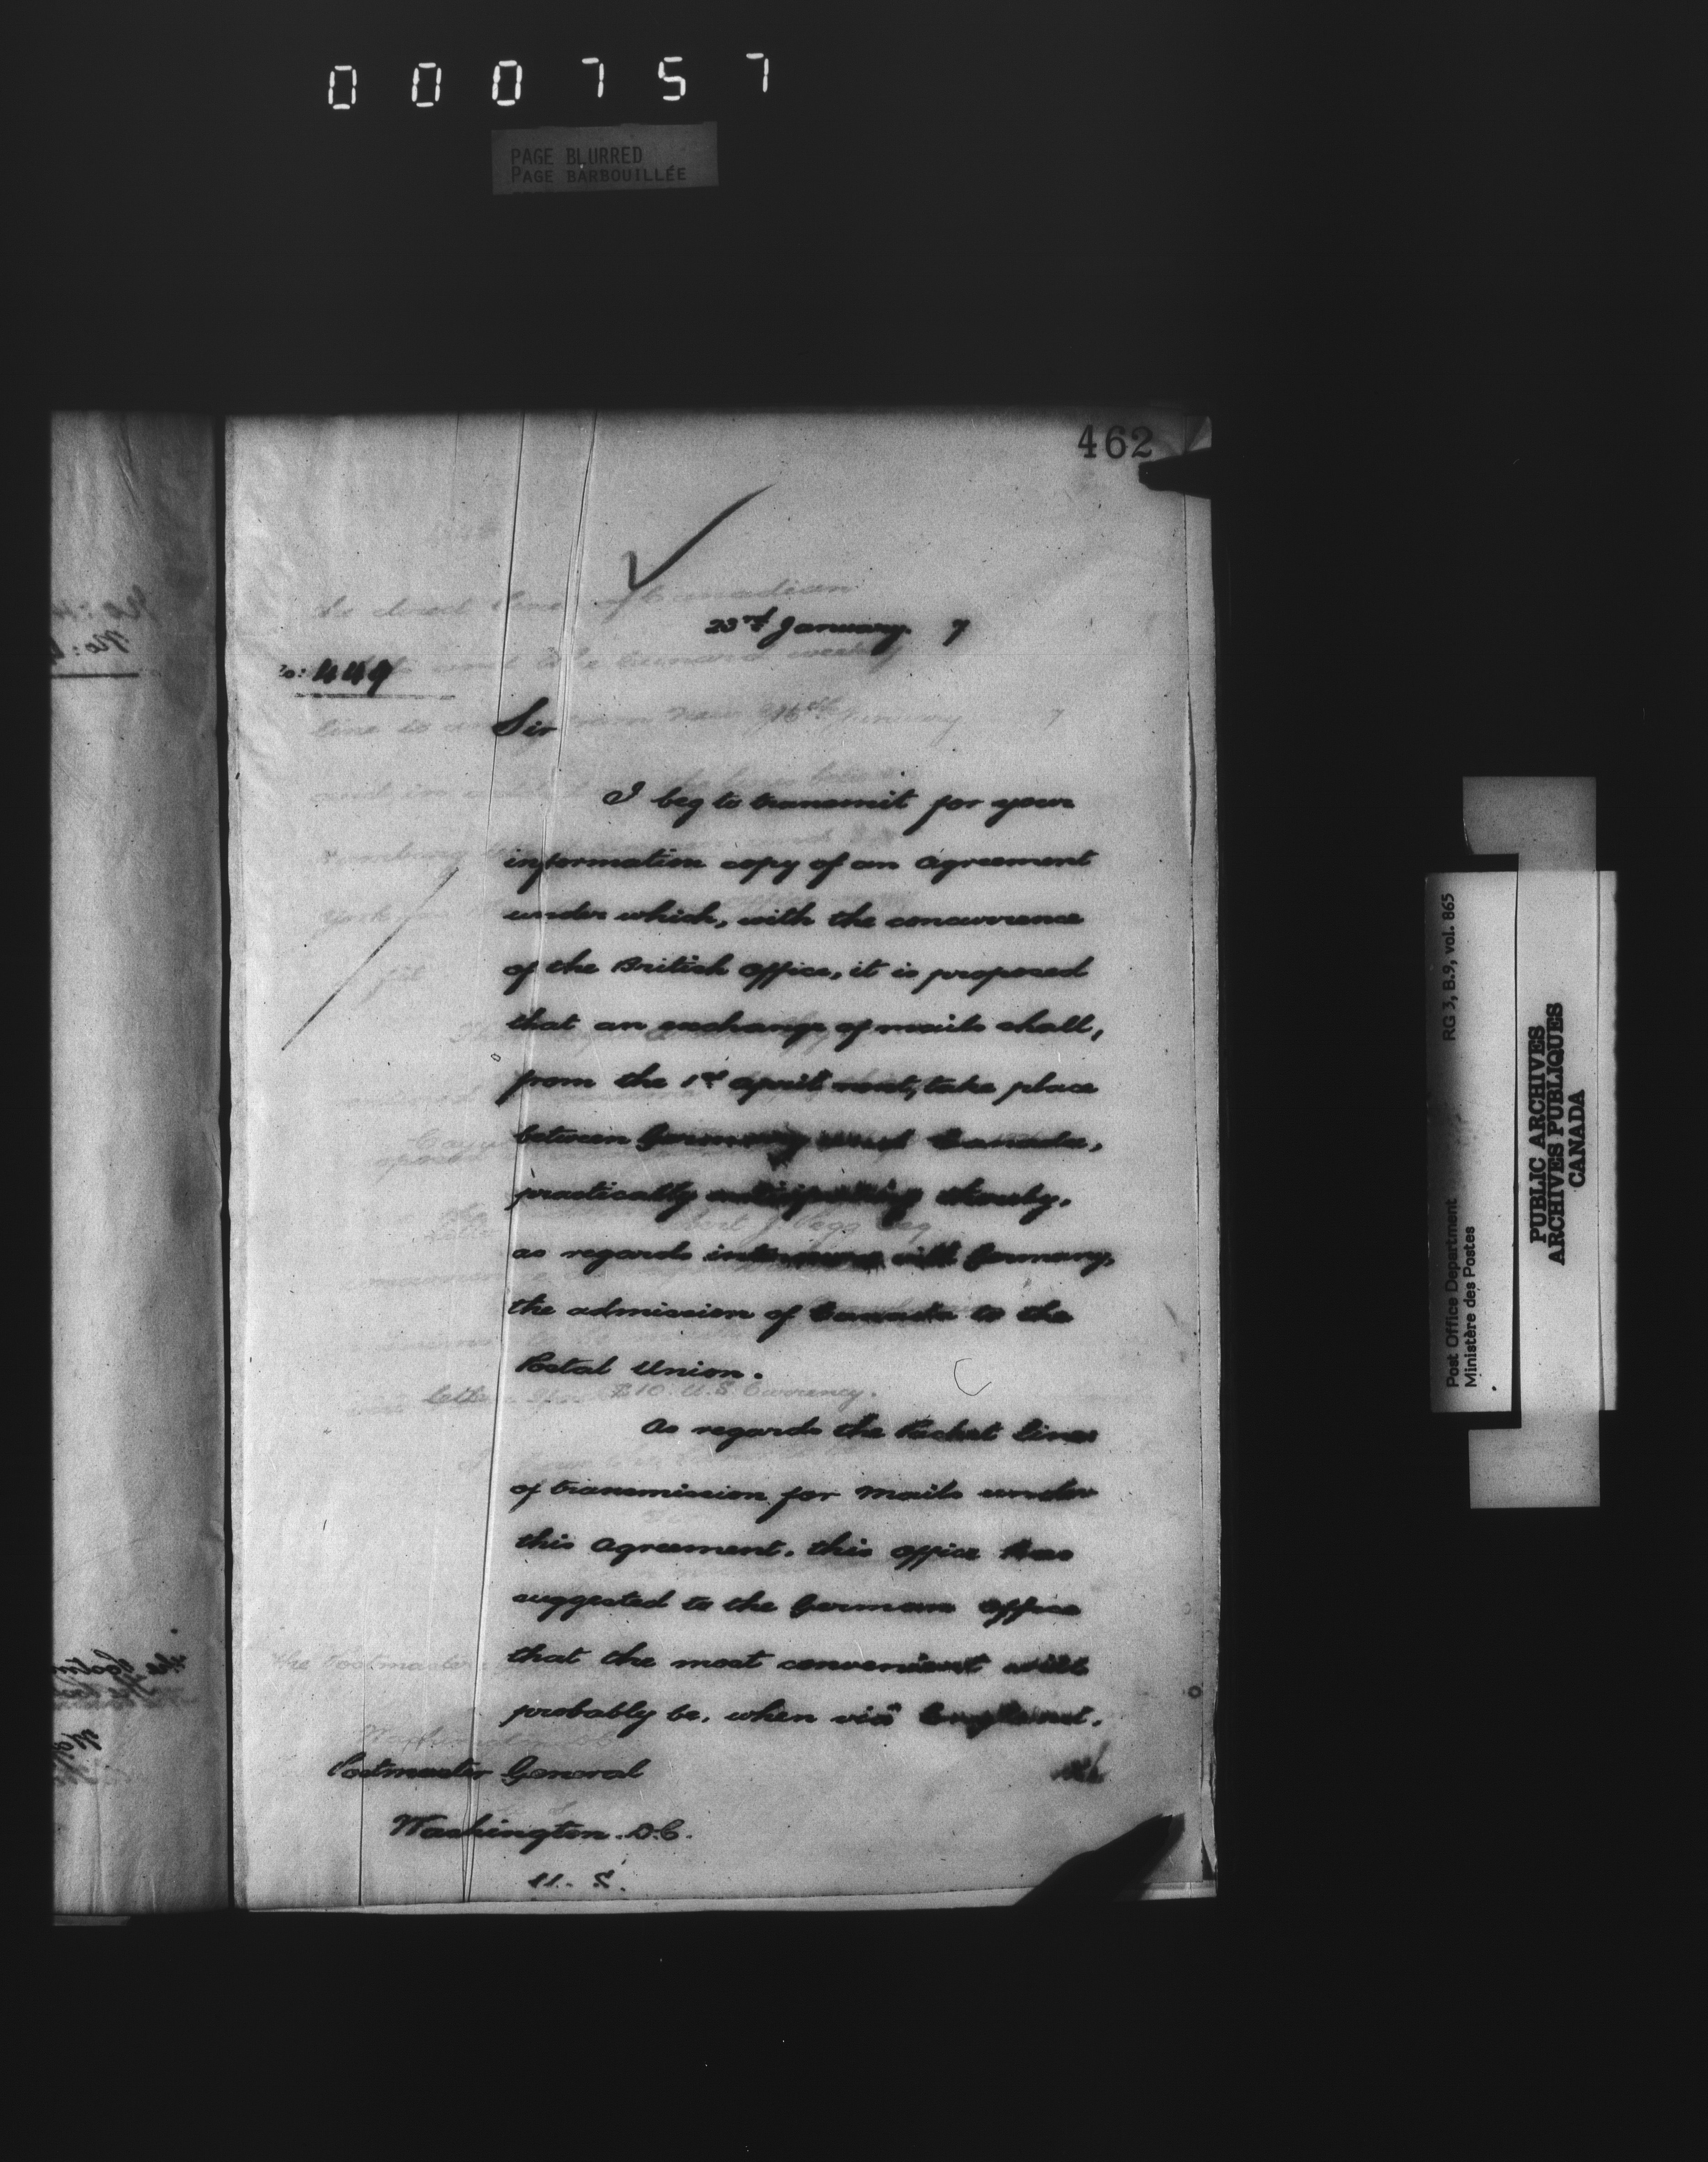 000757
PAGE BLURRED
PAGE BARBOUILLÉE
462
23rd January. 7
No: 449
Sir
I beg to transmit for your
information copy of an Agreement
under which, with the concurrence
of the British Office, it is proposed
that an exchange of mails shall,
from the 1st April next, take place
between Germany and Canada,
practically anticipating thereby,
as regards intercourse with Germany,
the admission of Canada to the
Postal Union.
As regards the Packet lines
of transmission for Mails under
this Agreement, this Office has
suggested to the German Office
that the most convenient will
probably be, when via England,
the
Postmaster General
Washington. D.C.
U.S.
RG 3, B.9, vol. 865
Post Office Department
Ministère des Postes
PUBLIC ARCHIVES
ARCHIVES PUBLIQUES
CANADA